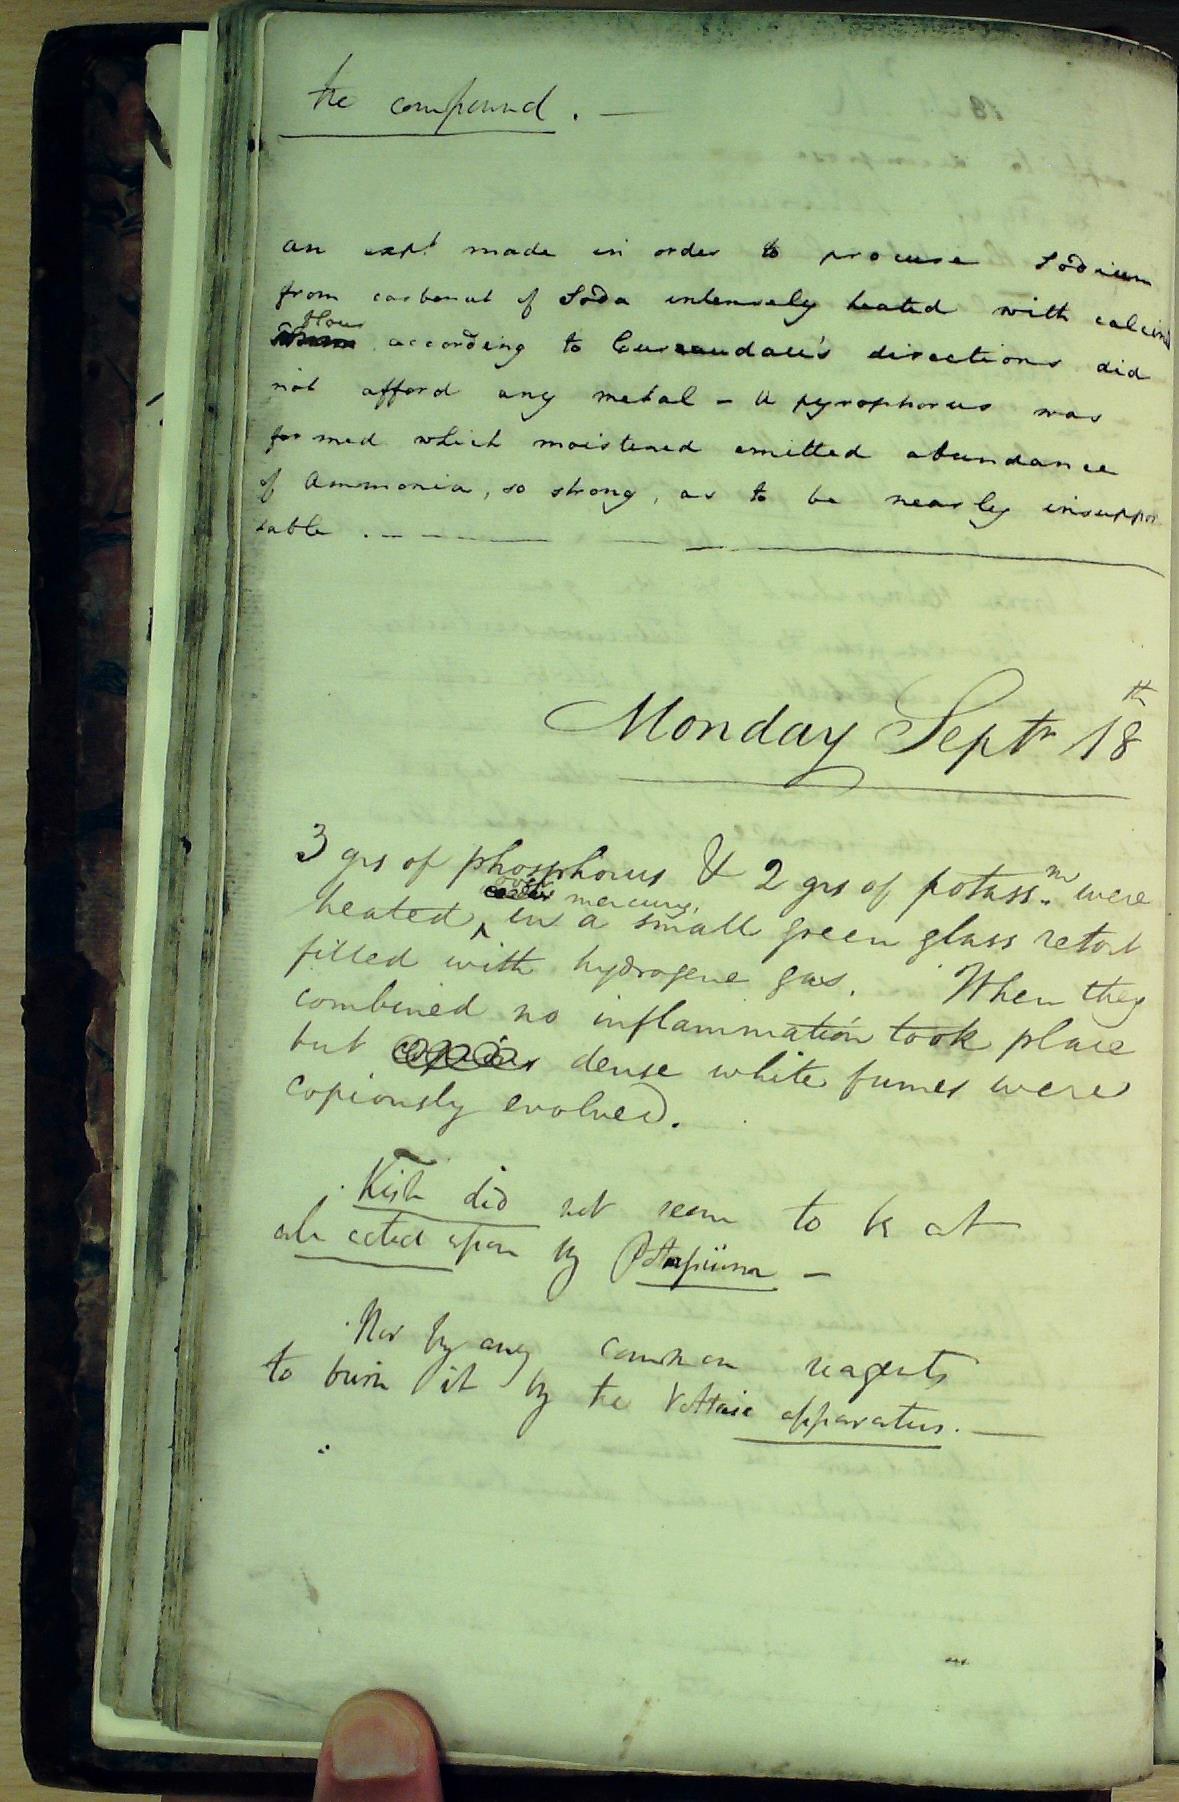 the compound. —
an expt made in order to procure Sodium
from carbonat of Soda intensely heated with calcind
flour
according to Curaudau's directions did
not afford any metal - a pyrophorus was
formed which moistened emitted abundance
of Ammonia, so strong, as to be nearly insuppor
table. — — —
Monday Septr 18th
3 grs of phosphorus & 2 grs of potassm. were
over mercury,
heated ‸ in a small green glass retort
filled with hydrogene gas. When they
combined no inflammation took place
but copious dense white fumes were
copiously evolved.
Kish did not seem to be at
all acted upon by Potassium —
Nor by any common reagents
to burn it by the Voltaic apparatus. —